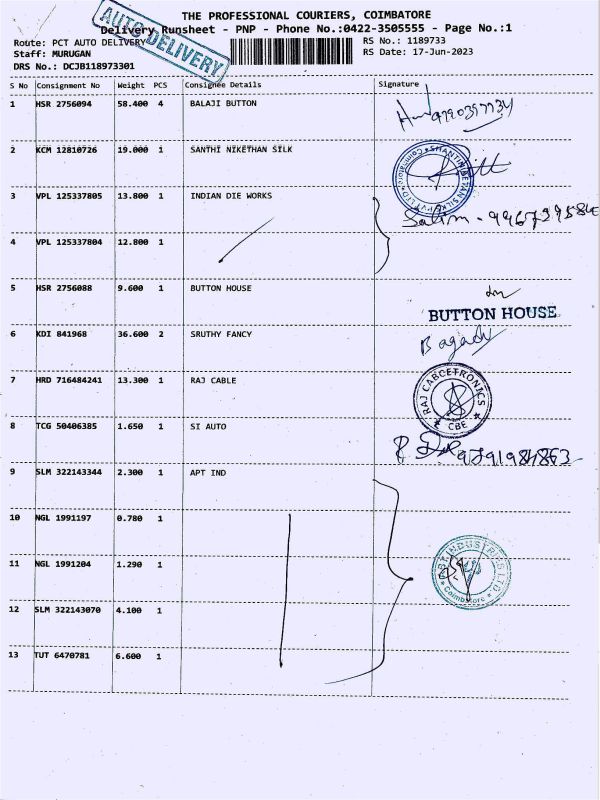 THE PROFESSIONAL COURIERS, COIMBATORE
AUTO DELIVERY
Delivery Runsheet - PNP - Phone No.:0422-3505555 - Page No.:1
Route: PCT AUTO DELIVERY RS No.: 1189733
Staff: MURUGAN RS Date: 17-Jun-2023
DRS No.: DCJB118973301
S No Consignment No Weight PCS Consignee Details Signature
1 HSR 2756094 58.400 4 BALAJI BUTTON
2 KCM 12810726 19.000 1 SANTHI NIKETHAN SILK
3 VPL 125337805 13.800 1 INDIAN DIE WORKS
Salim
4 VPL 125337804 12.800 1
5 HSR 2756088 9.600 1 BUTTON HOUSE
BUTTON HOUSE
6 KDI 841968 36.600 2 SRUTHY FANCY
7 HRD 716484241 13.300 1 RAJ CABLE
RAJ CABCETRONICS
CBE
8 TCG 50406385 1.650 1 SI AUTO
9 SLM 322143344 2.300 1 APT IND
10 NGL 1991197 0.780 1
11 NGL 1991204 1.290 1
INDUSTRIES LTD
Coimbatore
12 SLM 322143070 4.100 1
13 TUT 6470781 6.600 1